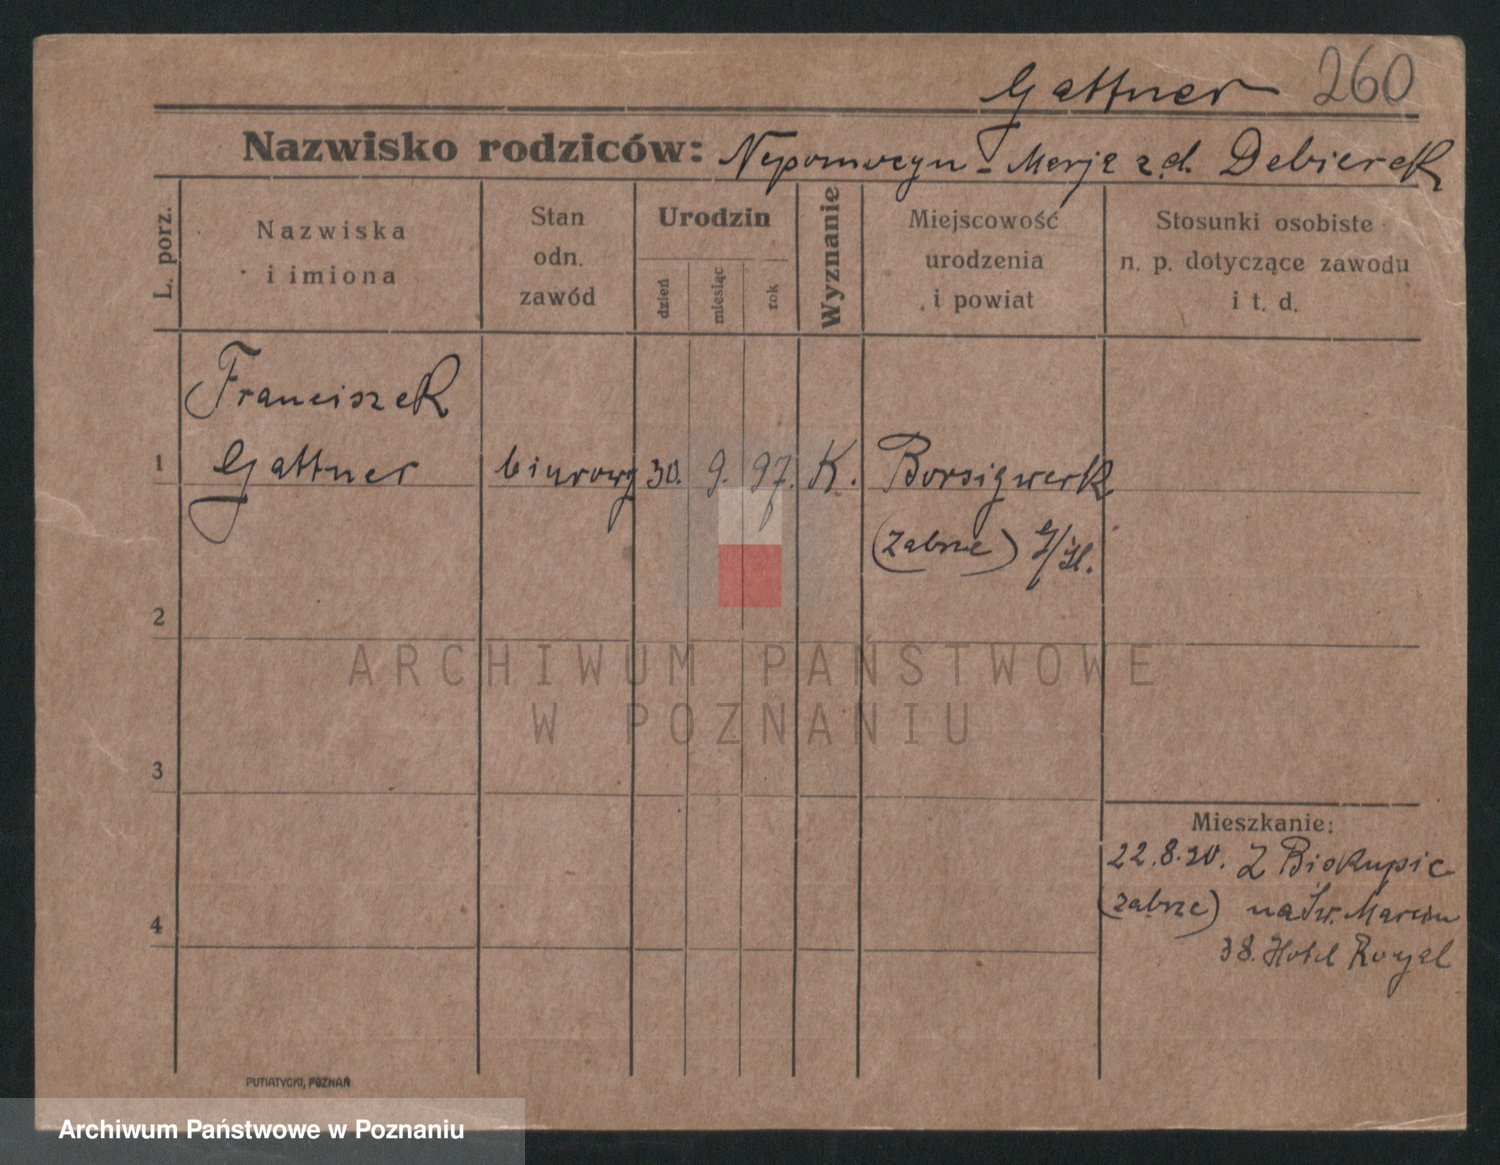 Gattner 260
Nazwisko rodziców: Nepomucyn - Marja z d. Debierek
L. porz.
Nazwiska
i imiona
Stan
odn.
zawód
Urodzin
dzień
miesiąc
rok
Wyznanie
Miejscowość
urodzenia
i powiat
Stosunki osobiste
n. p. dotyczące zawodu
i t. d.
Franciszek
1 Gattner biurowy 30. 9. 97. K. Borsigwerk
(Zabrze)
2
ARCHIWUM PAŃSTWOWE
W POZNANIU
3
Mieszkanie:
22.8.20. Z Biskupic
(Zabrze) na Św. Marcin
4
38. Hotel Royal
PUTIATYCKI, POZNAŃ
Archiwum Państwowe w Poznaniu